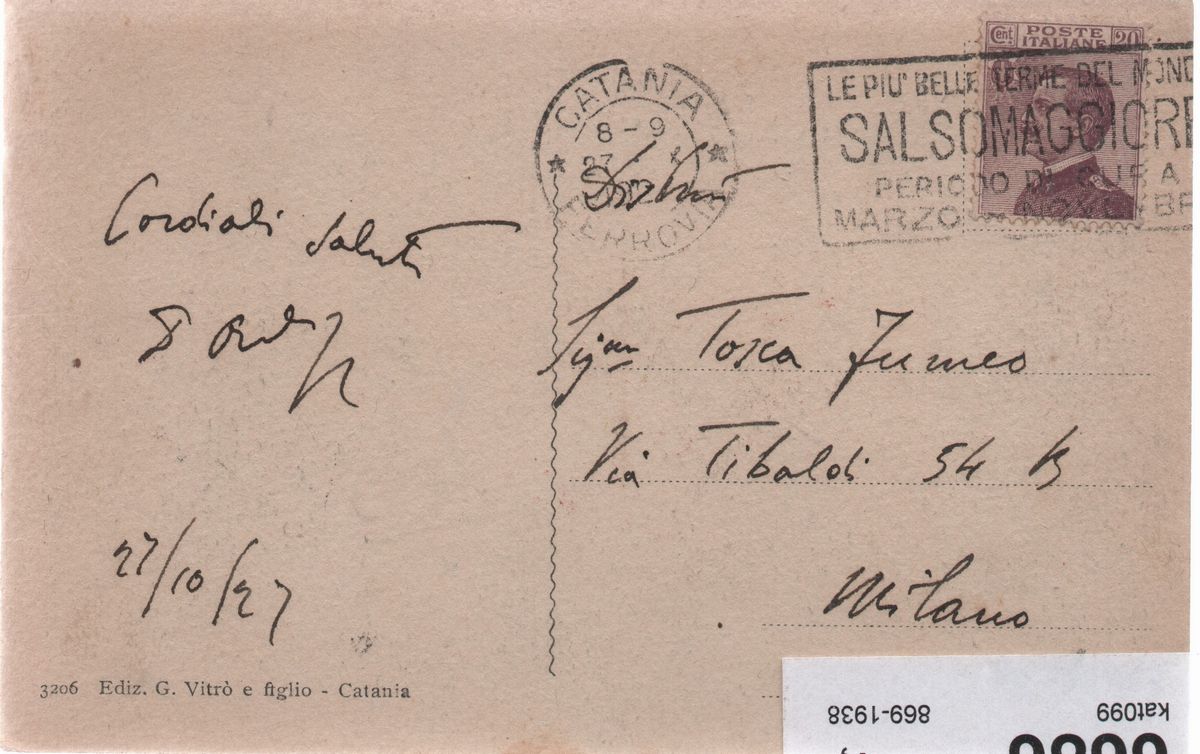 Cent. POSTE 20
ITALIANE
CATANIA
8-9
27
FERROVIA
LE PIU' BELLE TERME DEL MOND
SALSOMAGGIORE
PERIODO DI CURA
MARZO NOVEMBR
Cordiali Saluti
27/10/27
Tosca Fumeo
Via Tibaldi 54 B
Milano
3206 Ediz. G. Vitrò e figlio - Catania
kat099
869-1938